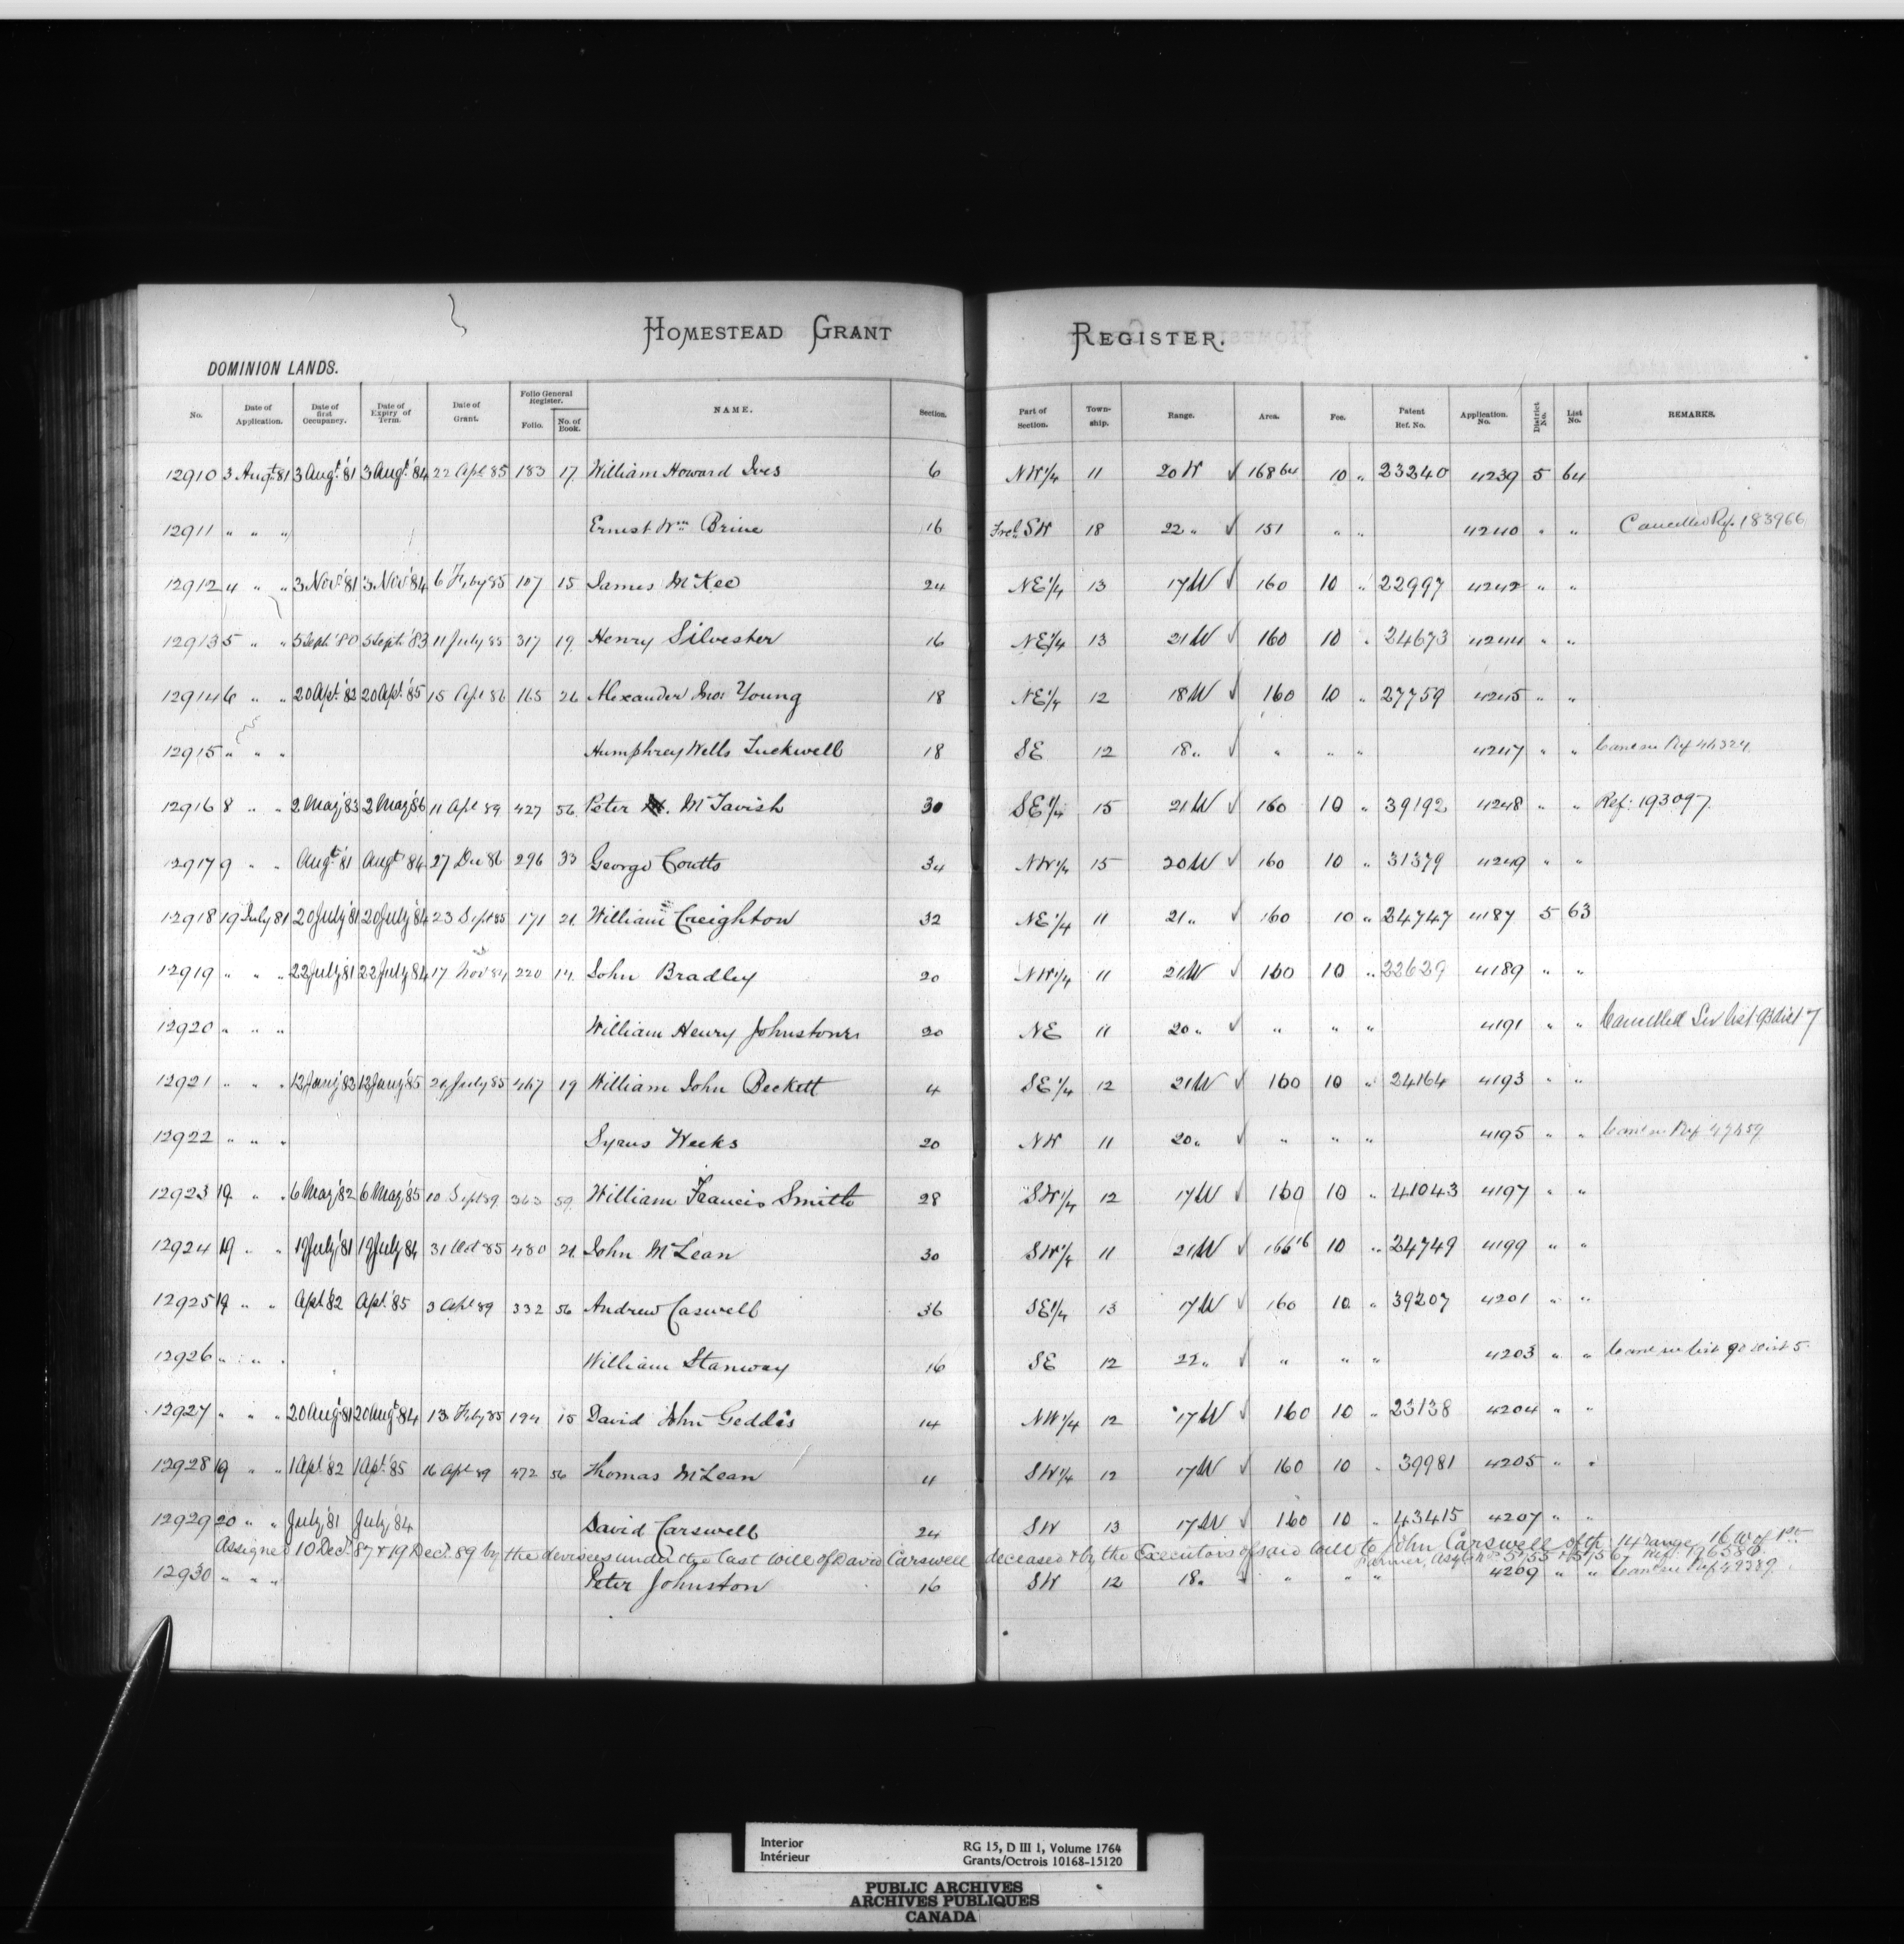 HOMESTEAD GRANT REGISTER.
DOMINION LANDS.
No. Date of Application. Date of first Occupancy. Date of Expiry of Term. Date of Grant. Folio General Register. Folio. No. of Book. NAME. Section. Part of Section. Town-ship. Range. Area. Fee. Patent Ref. No. Application. No. District No. List No. REMARKS.
12910 3 Augt. 81 3 Augt. '81 3 Augt. '84 22 Apl 85 183 17 William Howard Ives 6 NW 1/4 11 20 W √ 168 64 10 „ 23240 4239 5 64
12911 „ „ „ Ernest Wm Brine 16 Frcl SW 18 22 „ √ 151 „ „ 4240 „ „ Cancelled Ref. 183966
12912 4 „ „ 3 Nov. '81 3 Nov. '84 6 Feby 85 107 15 James McKee 24 NE 1/4 13 17 W √ 160 10 „ 22997 4242 „ „
12913 5 „ „ 5 Sept. '80 5 Sept. '83 11 July 85 317 19 Henry Silvester 16 NE 1/4 13 21 W √ 160 10 „ 24673 4244 „ „
12914 6 „ „ 20 Apl. '82 20 Apl. '85 15 Apl 86 165 26 Alexander Jno: Young 18 NE 1/4 12 18 W √ 160 10 „ 27759 4245 „ „
12915 „ „ „ Humphrey Wells Luckwell 18 SE 12 18 „ √ „ „ „ 4247 „ „
12916 8 „ „ 2 May '83 2 May '86 11 Apl 89 427 56 Peter McTavish 30 SE 1/4 15 21 W √ 160 10 „ 39192 4248 „ „ Ref: 193097
12917 9 „ „ Augt '81 Augt '84 27 Dec 86 296 33 George Coutts 34 NW 1/4 15 20 W √ 160 10 „ 31379 4249 „ „
12918 19 July 81 20 July '81 20 July '84 23 Sept 85 171 21 William Creighton 32 NE 1/4 11 21 „ √ 160 10 „ 24747 4187 5 63
12919 „ „ „ 22 July '81 22 July '84 17 Nov 84 220 14 John Bradley 20 NW 1/4 11 21 W √ 160 10 „ 22629 4189 „ „
12920 „ „ „ William Henry Johnstone 20 NE 11 20 „ √ „ „ „ 4191 „ „ Cancelled See list 93 dist 7
12921 „ „ „ 12 Jany '82 12 Jany '85 29 July 85 467 19 William John Beckett 4 SE 1/4 12 21 W √ 160 10 „ 24164 4193 „ „
12922 „ „ „ Syrus Weeks 20 NW 11 20 „ √ „ „ „ 4195 „ „
12923 19 „ „ 6 May '82 6 May '85 10 Sept 89 363 59 William Francis Smith 28 SW 1/4 12 17 W √ 160 10 „ 41043 4197 „ „
12924 19 „ „ 19 July '81 19 July '84 31 Oct 85 480 21 John McLean 30 SW 1/4 11 21 W √ 166 16 10 „ 24749 4199 „ „
12925 19 „ „ Apl. '82 Apl. '85 3 Apl 89 332 56 Andrew Caswell 36 SE 1/4 13 17 W √ 160 10 „ 39207 4201 „ „
12926 „ „ „ William Stanway 16 SE 12 22 „ √ „ „ „ 4203 „ „
12927 „ „ „ 20 Augt '81 20 Augt '84 13 Feby 85 194 15 David John Geddes 14 NW 1/4 12 17 W √ 160 10 „ 23138 4204 „ „
12928 19 „ „ 1 Apl. '82 1 Apl. '85 16 Apl 89 472 56 Thomas McLean 4 SW 1/4 12 17 W √ 160 10 „ 39981 4205 „ „
12929 20 „ „ July '81 July '84 David Carswell 24 SW 13 17 W √ 160 10 „ 43415 4207 „ „
Assigned 10 Dect. 87 & 19 Dect. 89 by the devisees under the last will of David Carswell deceased & by the Executors of said will to John Carswell of tp. 14 range 16 W of 1st
Farmer, Ref. 196586
12930 „ „ „ Peter Johnston 16 SW 12 18 „ „ „ „ 4209 „ „
Interior
Intérieur
RG 15, D III 1, Volume 1764
Grants/Octrois 10168-15120
PUBLIC ARCHIVES
ARCHIVES PUBLIQUES
CANADA